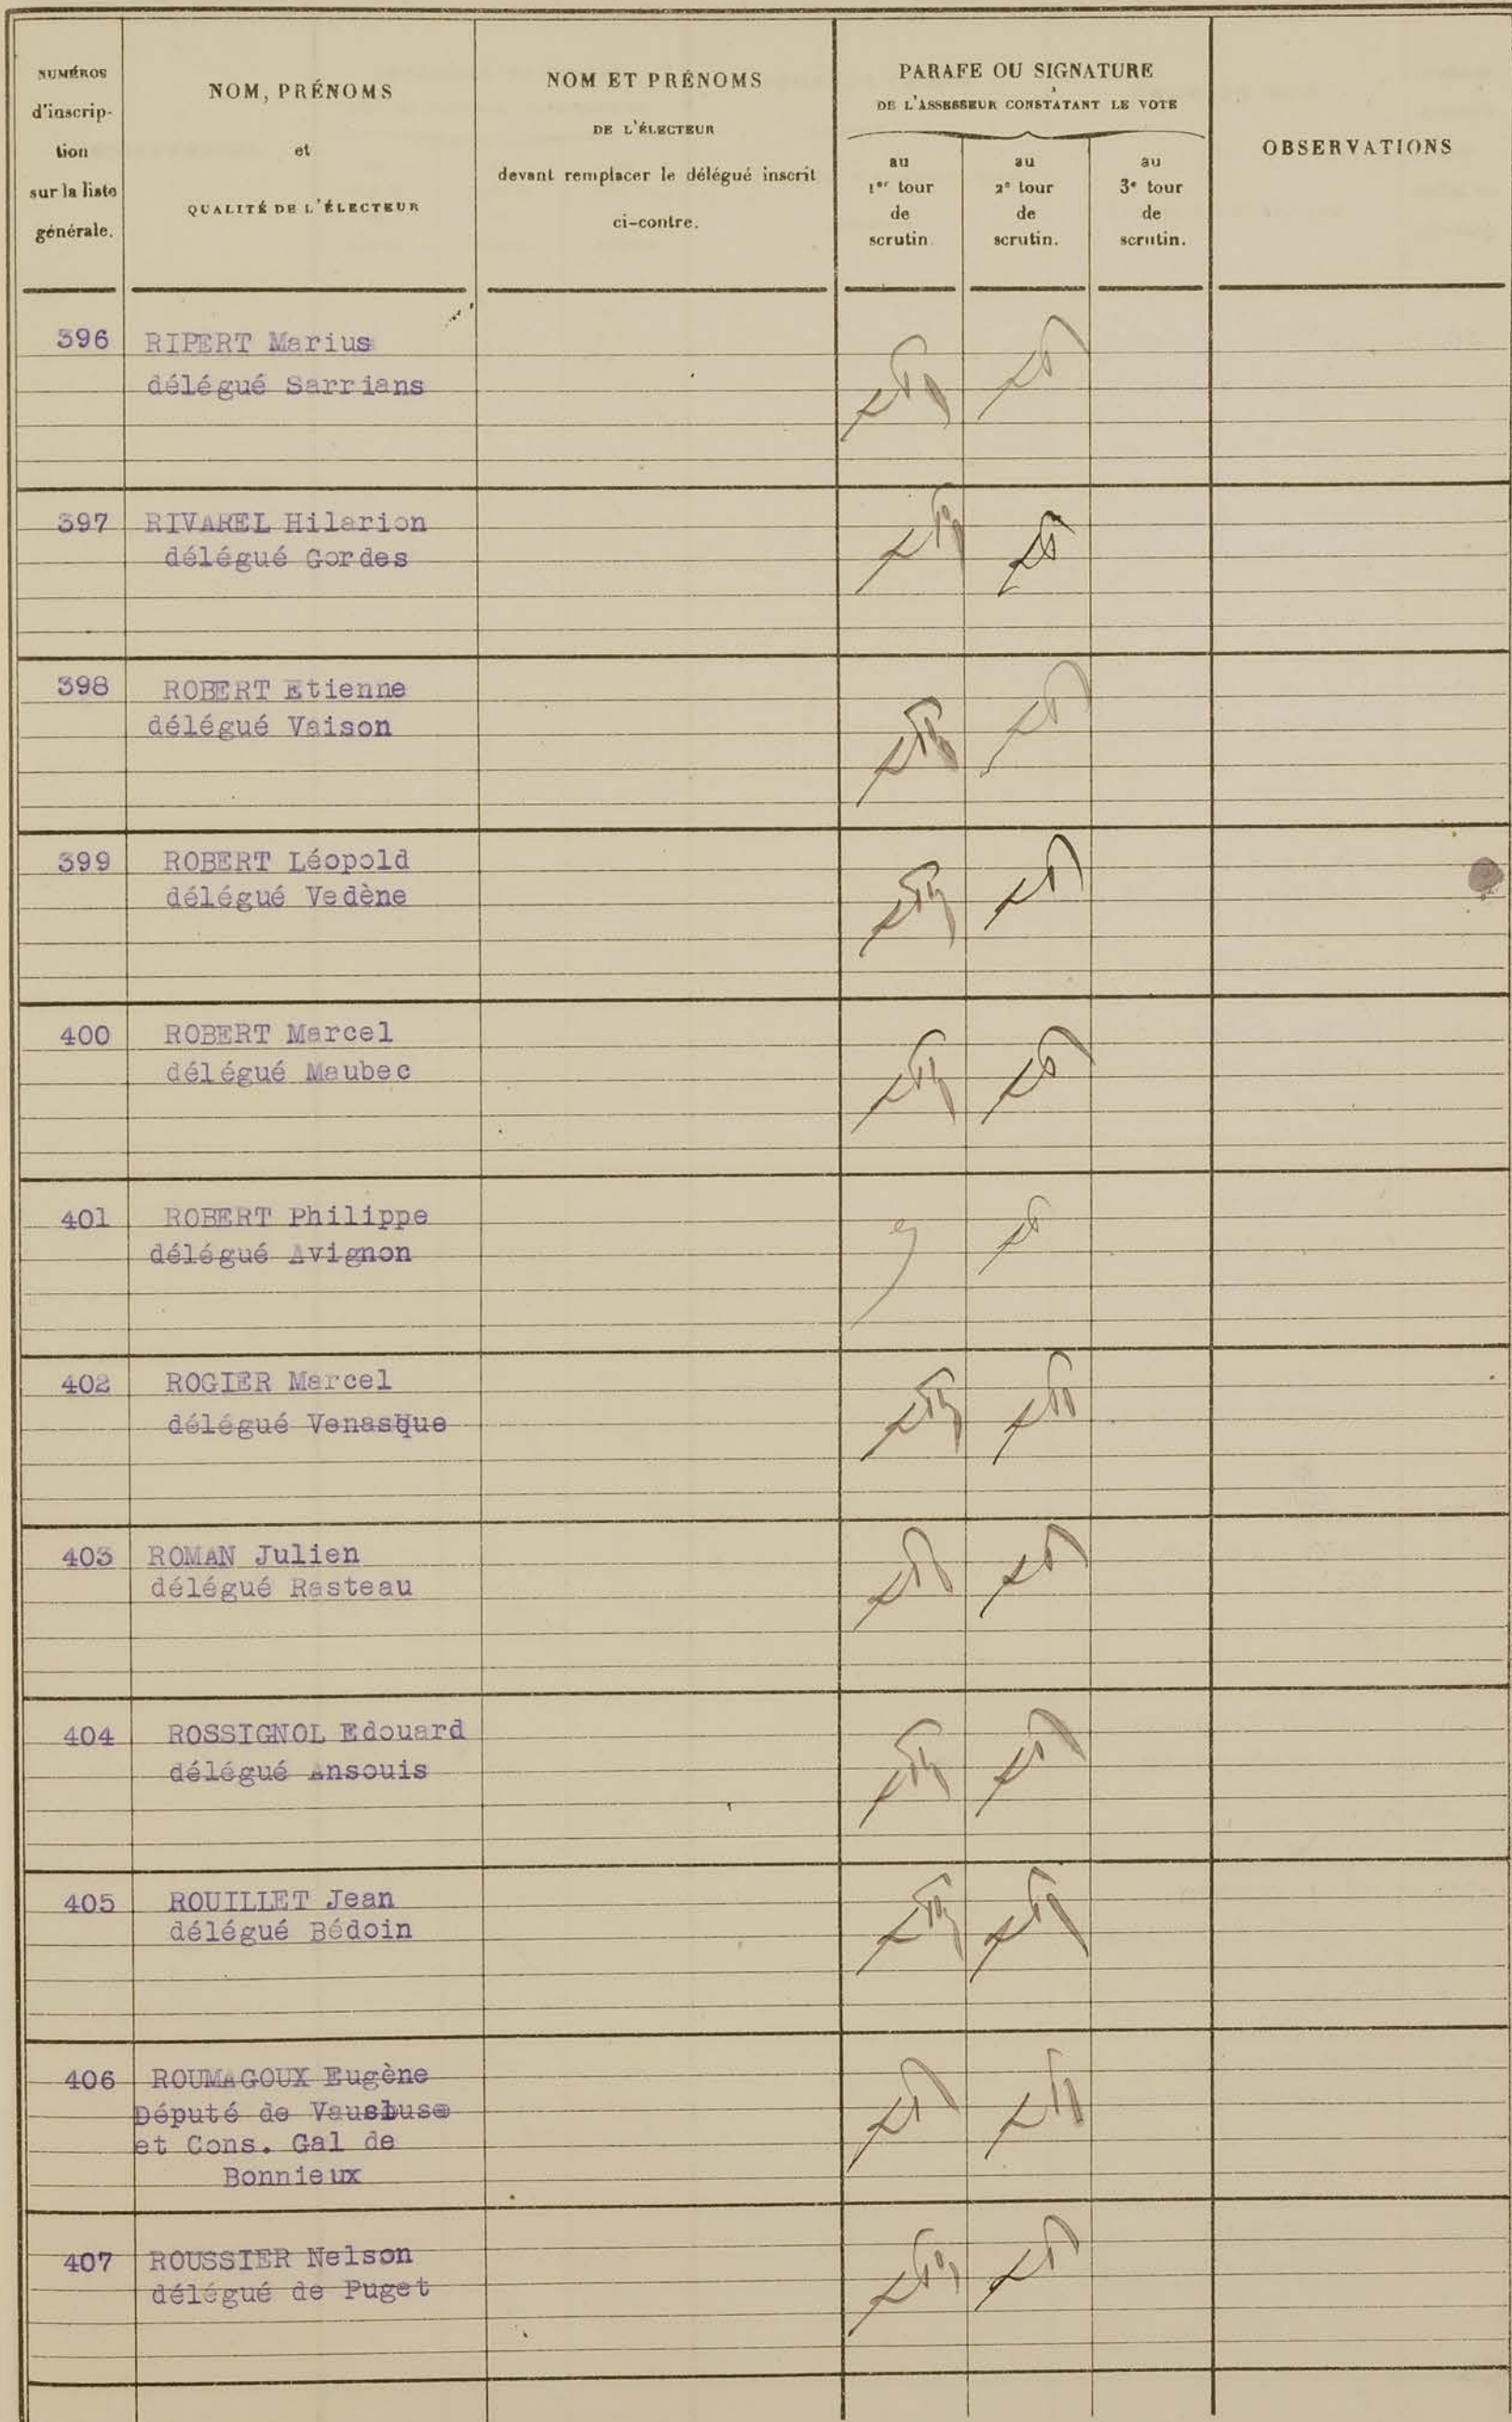 NUMÉROS
d'inscrip-
tion
sur la liste
générale.
NOM, PRÉNOMS
et
QUALITÉ DE L'ÉLECTEUR
NOM ET PRÉNOMS
DE L'ÉLECTEUR
devant remplacer le délégué inscrit
ci-contre.
PARAFE OU SIGNATURE
DE L'ASSESSEUR CONSTATANT LE VOTE
au
1er tour
de
scrutin.
au
2e tour
de
scrutin.
au
3e tour
de
scrutin.
OBSERVATIONS
396 RIPERT Marius
délégué Sarrians
397 RIVAREL Hilarion
délégué Gordes
398 ROBERT Etienne
délégué Vaison
399 ROBERT Léopold
délégué Vedène
400 ROBERT Marcel
délégué Maubec
401 ROBERT Philippe
délégué Avignon
402 ROGIER Marcel
délégué Venasque
403 ROMAN Julien
délégué Rasteau
404 ROSSIGNOL Edouard
délégué Ansouis
405 ROUILLET Jean
délégué Bédoin
406 ROUMAGOUX Eugène
Député de Vaucluse
et Cons. Gal de
Bonnieux
407 ROUSSIER Nelson
délégué de Puget